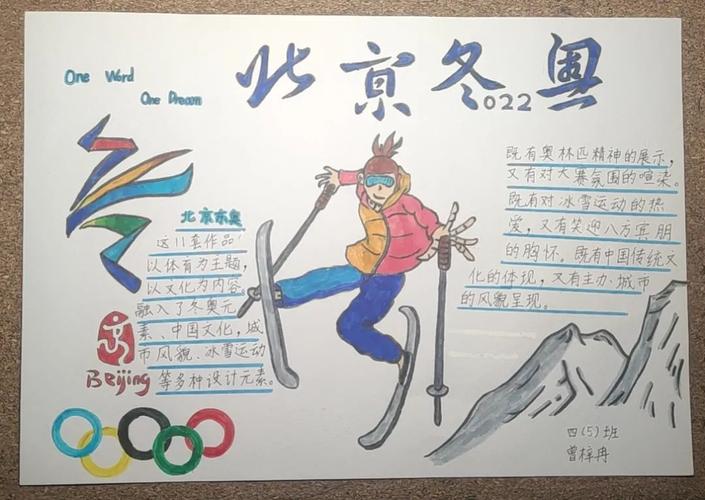 One Word
One Dream
北京冬奥
022
北京东奥
这11套作品!
以体育为主题,
以文化为内容。
融入了冬奥元
素、中国文化,城
市风貌、冰雪运动
等多种设计元素。
Beijing
既有奥林匹精神的展示,
又有对大赛氛围的喧染。
既有对冰雪运动的热
爱,又有笑迎八方宾朋
的胸怀。既有中国传统文
化的体现,又有主办城市
的风貌呈现。
四(5)班
曾梓冉